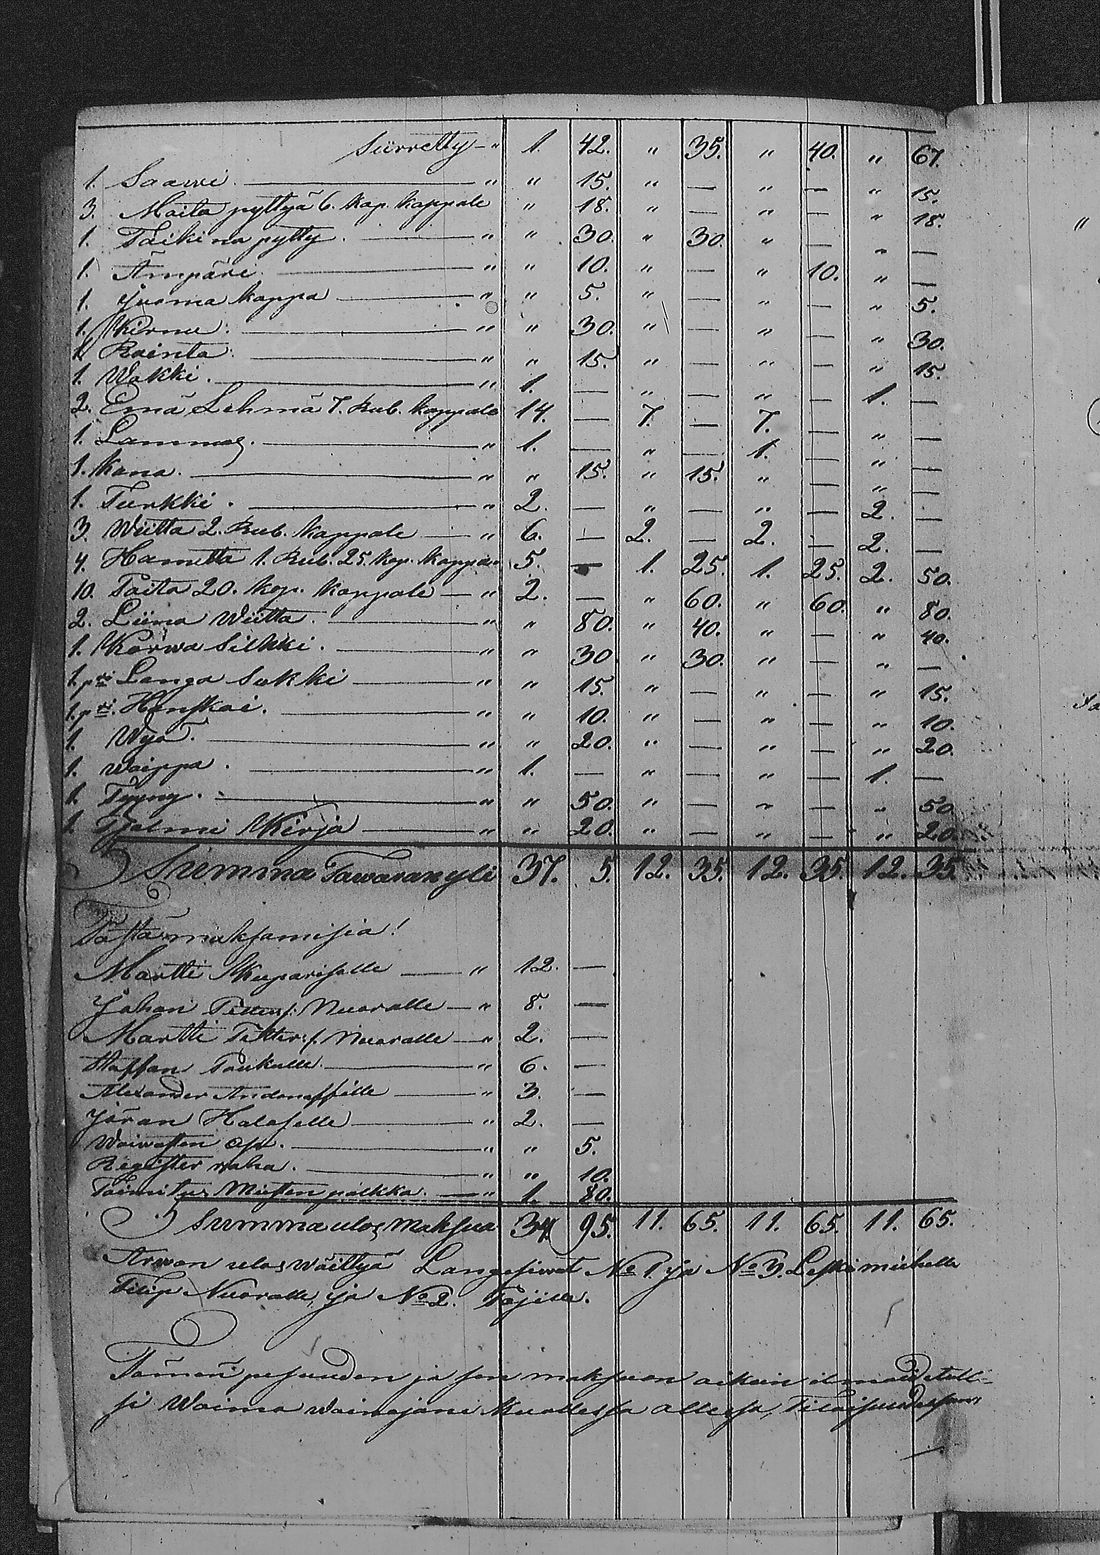 Siirretty " 1. 42. " 35. " 40. " 67.
1. Saawi " " 15. " — " — " 15.
3. Maito pyttyä 6. kop. kappale " 18. " — " — " 18.
1. Taikina pytty. " " 30. " 30. " — " —
1. Ämpäri " " 10. " — " 10. " —
1. Juoma kappa " " 5. " — " — " 5.
1. Kirnu. " " 30. " — " — " 30.
1. Rainta. " " 15. " — " — " 15.
1. Wakki. " 1. — " — " — 1. —
2. Emä Lehmä 7. Rub. kappale 14. — 7. — 7. — " —
1. Lammas. " 1. — " — 1. — " —
1. Kana. " " 15. " 15. " — " —
1. Turkki. " 2. — " — " — 2. —
3. Wiitta 2. Rub. kappale " 6. — 2. — 2. — 2. —
4. Hametta 1. Rub. 25. kop. kappale " 5. — 1. 25. 1. 25. 2. 50.
10. Paita 20. kop. kappale " 2. — " 60. " 60. " 80.
2. Liina Wiitta. " " 80. " 40. " — " 40.
1. Korwa Silkki. " " 30 " 30. " — " —
1. pri Langa Sukki " " 15. " — " — " 15.
1. pri. Hanskai. " " 10. " — " — " 10.
1. Wyö. " " 20. " — " — " 20.
1. Waippa. " 1. — " — " — 1. —
1. Tyyny. " " 50. " — " — " 50
1. Psalmi Kirja " " 20. " — " — " 20.
Summa Tawaran yli 37. 5. 12. 35. 12. 35. 12. 35.
Tästä maksamisia!
Martti Kupariselle " 12. —
Johan Petter s. Nuoralle " 8. —
Martti Petter s. Nuoralle " 2. —
Staffan " 6. —
Alexander " 3. —
Jöran " 2. —
Waiwasten osa. " " 5.
Register raha. " " 10.
Toimitus Miesten palkka. " 1. 80.
Summa ulos maksua 34 95. 11. 65. 11. 65. 11. 65.
Arwan ulos wäittyä Langesiwat No 1. ja No 3. Leski miehelle
Filip Nuoralle, ja No 2.
Tämän pesuuden ja sen maksuon oikein ilmoidetuk-
si Woima